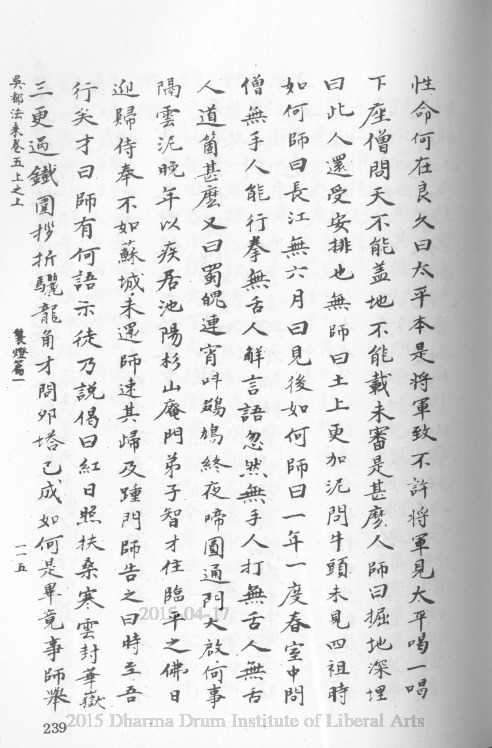 性命何在良久曰太平本是将軍致不許将軍見太平喝一喝
下座僧問天不能盖地不能載未審是甚麽人師曰掘地深埋
曰此人還受安排也無師曰土上更加泥問牛頭未見四祖時
如何師曰長江無六月曰見後如何師曰一年一度春室中問
僧無手人能行拳無舌人解言語忽然無手人打無舌人無舌
人道箇甚麽又曰蜀魄連宵呌鷄鳩終夜啼圓通門大啟何事
隔雲泥晚年以疾居池陽杉山庵門弟子智才住臨平之佛日
迎歸侍奉不如蘇城未還師速其歸及踵門師告之曰時至吾
行矣才曰師有何語示徒乃說偈曰紅日照扶桑寒雲封華嶽
三更過鐵圍拶折驪龍角才問卵塔已成如何是畢竟事師舉
吳都法乘卷五上之上
篇一
一一五
239
2015-04-17
2015 Dharma Drum Institute of Liberal Arts